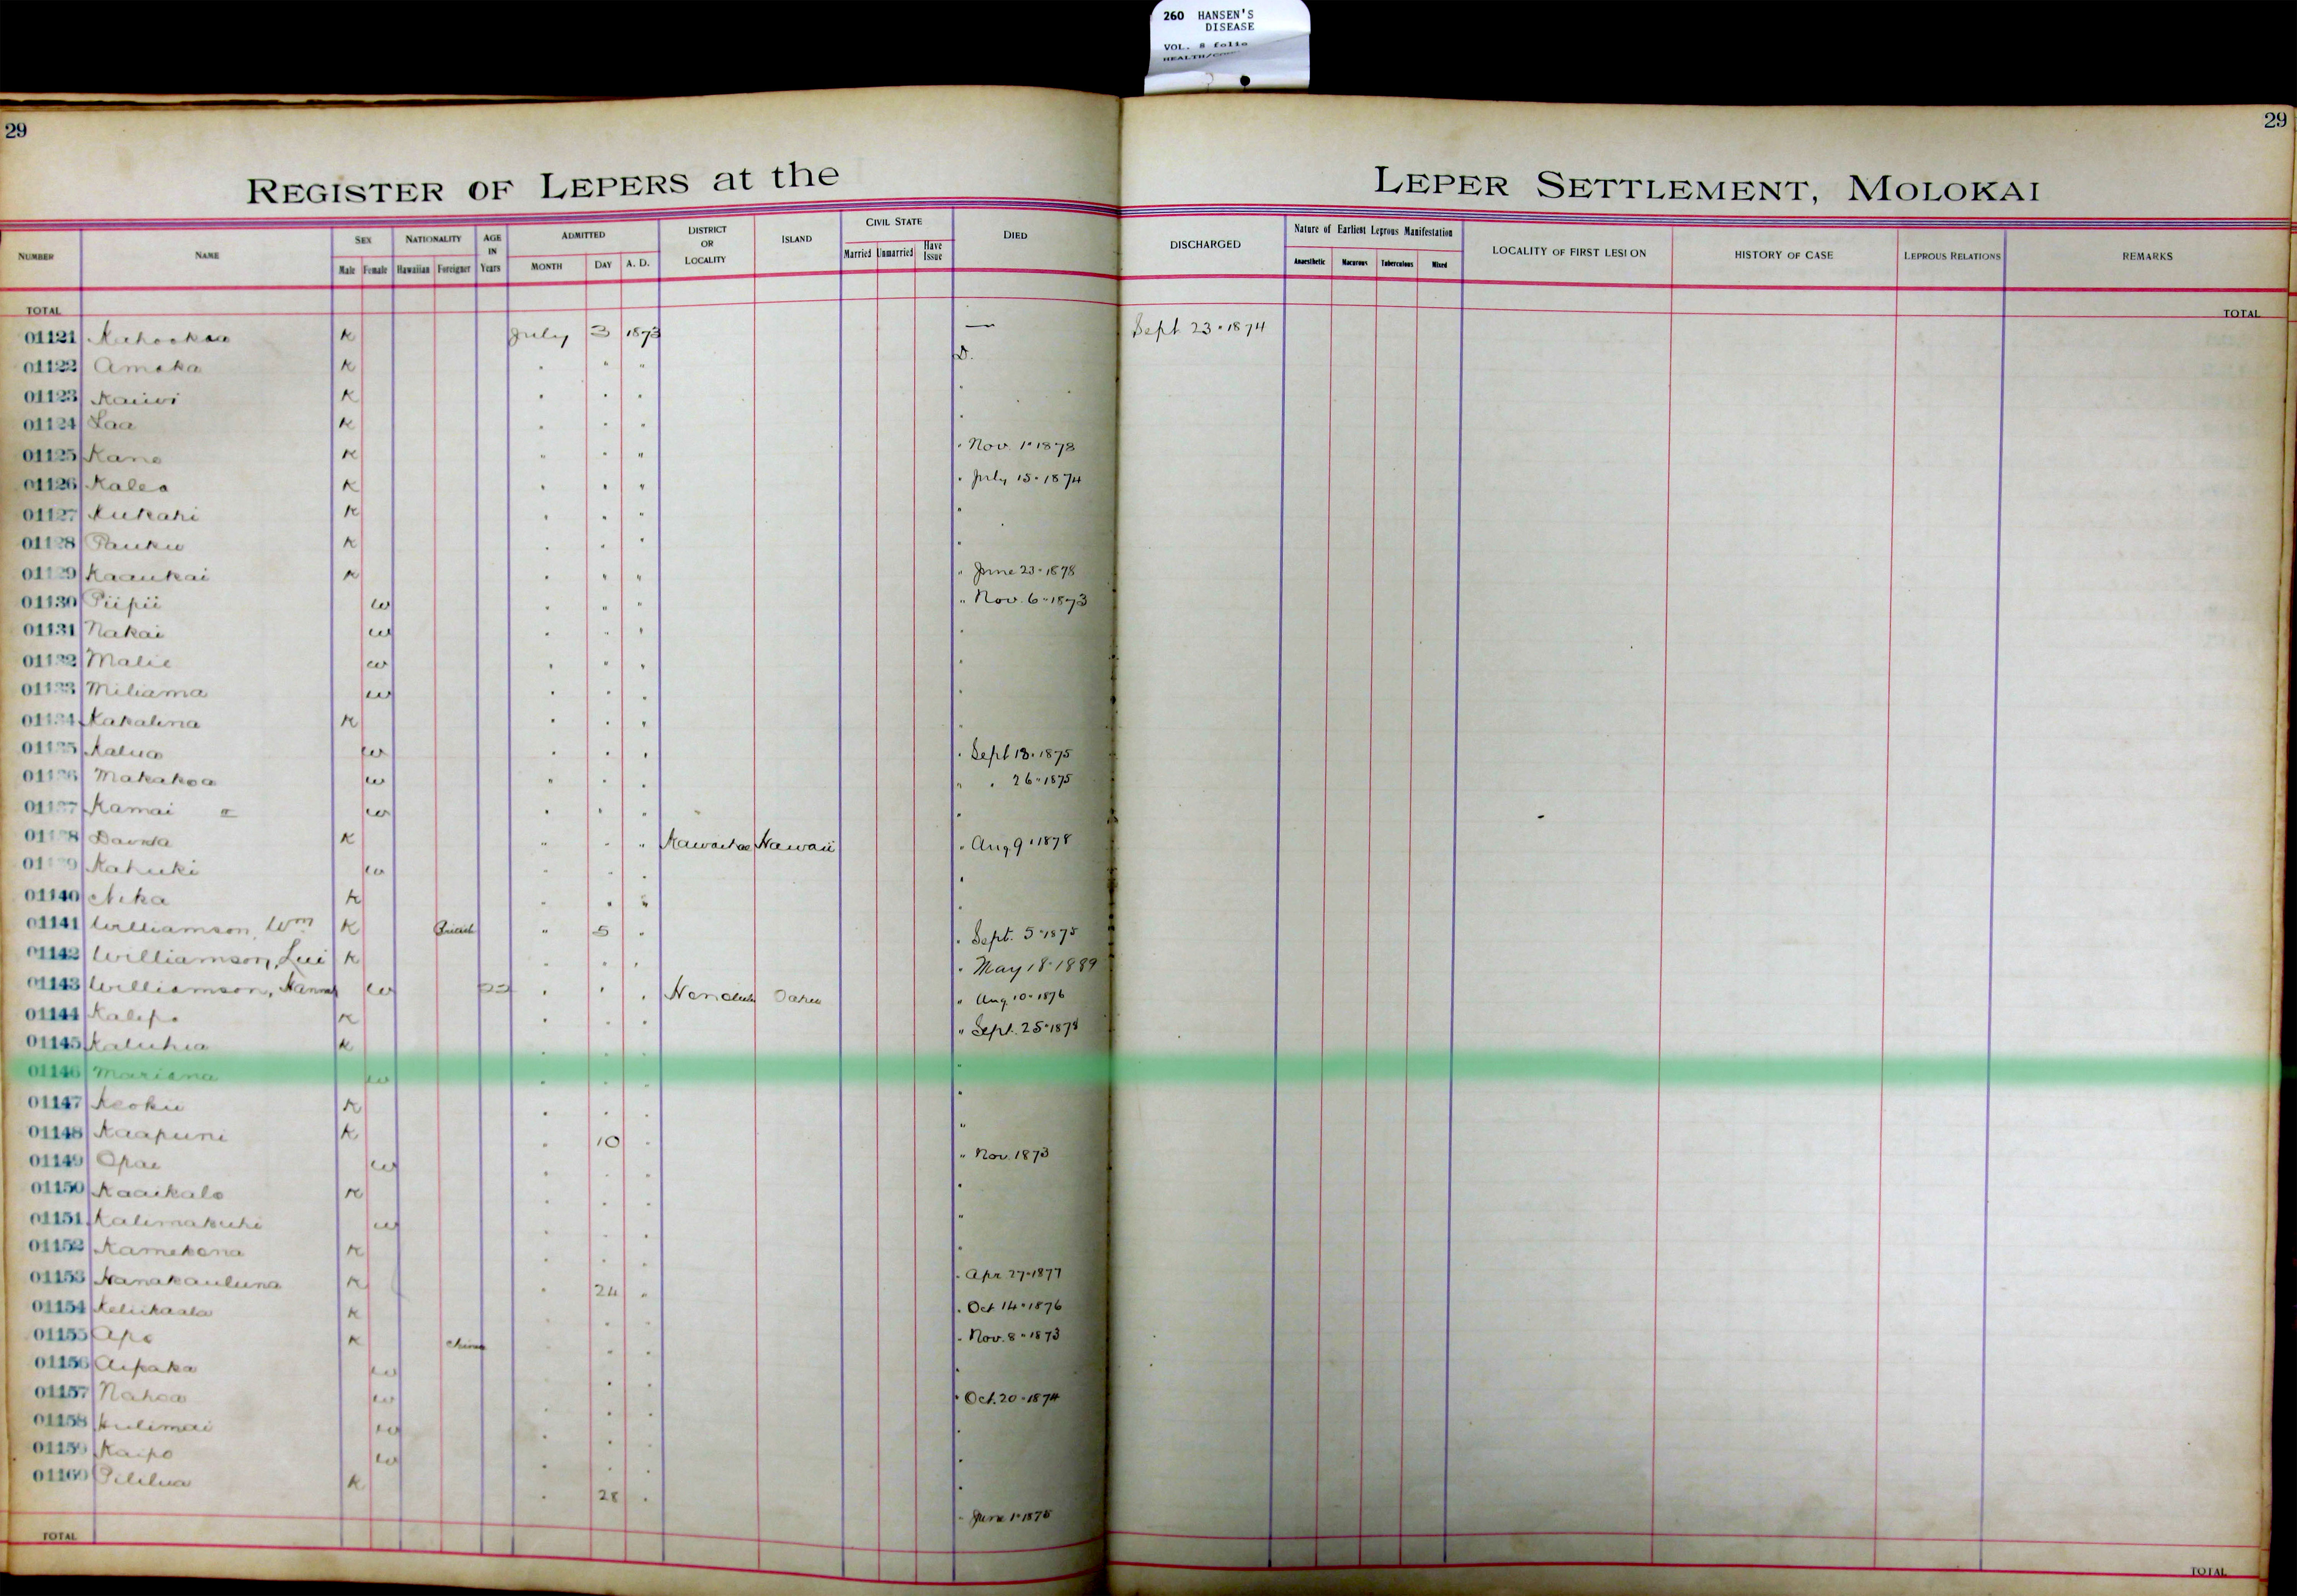 260 HANSEN'S
DISEASE
VOL. 8 folio
29
29
REGISTER OF LEPERS at the LEPER SETTLEMENT, MOLOKAI
NUMBER NAME SEX Male Female NATIONALITY Hawaiian Foreigner AGE IN Years ADMITTED MONTH DAY A. D. DISTRICT OR LOCALITY ISLAND CIVIL STATE Married Unmarried Have Issue DIED DISCHARGED Nature of Earliest Leprous Manifestation Anaesthetic Macurous Tuberculous Mixed LOCALITY OF FIRST LESION HISTORY OF CASE LEPROUS RELATIONS REMARKS
TOTAL TOTAL
01121 K July 3 1873 — Sept 23 · 1874
01122 Amaka K " " " D.
01123 Kaiwi K " " " "
01124 Laa K " " " "
01125 Kane K " " " " Nov. 1 · 1878
01126 Kalea K " " " " July 15 · 1874
01127 Kukahi K " " " "
01128 Pauku K " " " "
01129 Kaaukai K " " " " June 23 · 1878
01130 Piipii w " " " " Nov. 6 · 1873
01131 Nakai w " " " "
01132 Malie w " " " "
01133 Miliama w " " " "
01134 Kakalina K " " " "
01135 Kalua w " " " " Sept 18 · 1875
01136 Makakoa w " " " " " 26 · 1875
01137 Kamai w " " " "
01138 K " " " Kawaihae Hawaii " Aug 9 · 1878
01139 Kahuki w " " " "
01140 Nika K " " " "
01141 Williamson, Wm K British " 5 " " Sept. 5 · 1875
01142 Williamson, Lui K " " " " May 18 · 1889
01143 Williamson, Hannah w " " " Honolulu Oahu " Aug. 10 · 1876
01144 Kalepo K " " " " Sept. 25 · 1878
01145 Kaluhia K " " " "
01146 Mariana w " " " "
01147 Keoku K " " " "
01148 Kaapuni K " 10 " "
01149 Opae w " " " " Nov. 1873
01150 Kaaikalo K " " " "
01151 Kalimakuhi w " " " "
01152 Kamekona K " " " "
01153 Nanakauluna K " 24 " " Apr 27 · 1877
01154 Keliikaala K " " " " Oct 14 · 1876
01155 Apo K China " " " " Nov. 8 · 1873
01156 Aipaka w " " " "
01157 Nahoa w " " " " Oct. 20 · 1874
01158 Kulimai w " " " "
01159 Kaipo w " " " "
01160 Pililua K " 28 " " June 1 · 1875
TOTAL TOTAL